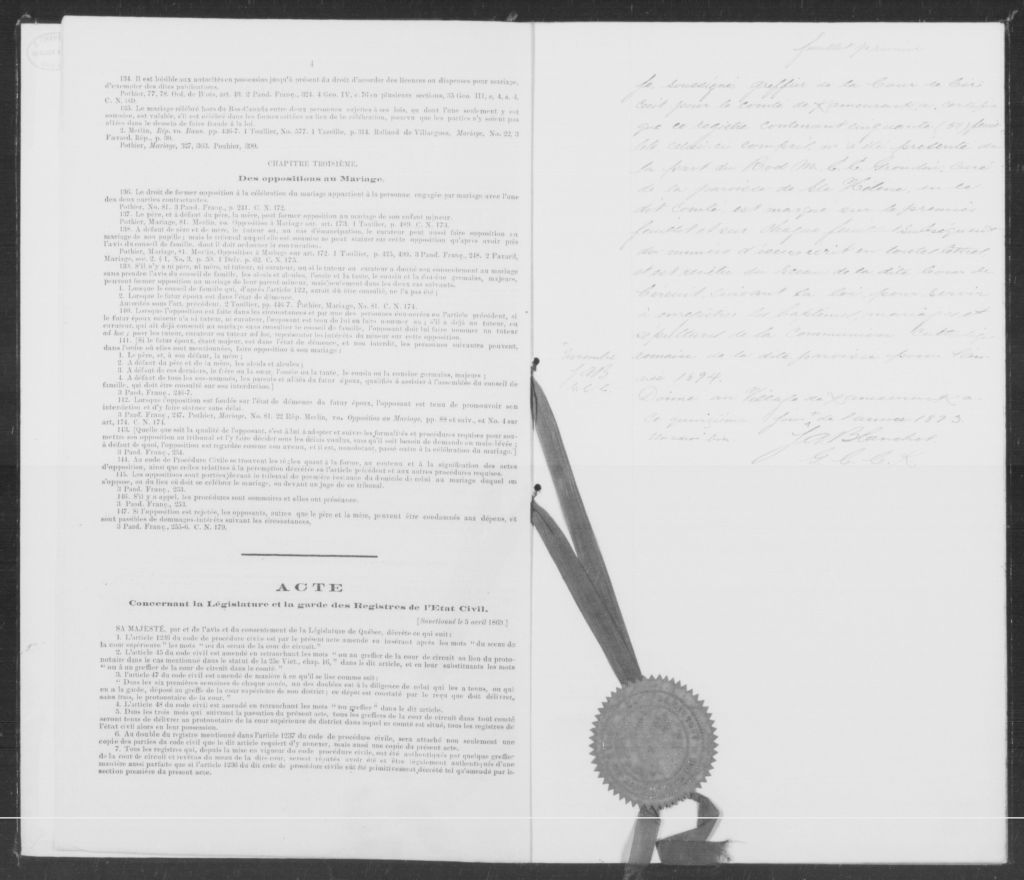 4
134. Il est loisible aux autorités en possession jusqu'à présent du droit d'accorder des licences ou dispenses pour mariage,
d'exempter des dites publications.
Pothier, 77, 78. 
C. N. 169.
135. Le mariage célébré hors du Bas-Canada entre deux personnes sujettes à ses lois, ou dont l'une seulement y est
soumise, est valable, s'il est célébré dans les formes usitées au lieu de la célébration, pourvu que les parties n'y soient pas
allées dans le dessein de faire fraude à la loi.
2. Merlin, Rép. vo. Bans. pp. 446-7. 1 Toullier, No. 577. 1 Vazeille, p. 314. Rolland de Villargues, Mariage, No. 22, 3
Favard, Rép., p. 
Pothier, Mariage, 327, 363. Pouhier, 
CHAPITRE TROISIÈME.
Des oppositions au Mariage.
136. Le droit de former opposition à la célébration du mariage appartient à la personne engagée par mariage avec l'une
des deux parties contractantes.
Pothier, No. 81. 3 Pand. Franç., p. 241. C. N. 172.
137. Le père, et à défaut du père, la mère, peut former opposition au mariage de son enfant mineur.
Pothier, Mariage, 81. Merlin, vo. Opposition à Mariage sur art. 173. 1 Toullier, p. 489. C. N. 173.
138. A défaut de père et de mère, le tuteur et, au cas d'émancipation, le curateur peut aussi faire opposition au
mariage de son pupille; mais le tribunal auquel elle est soumise ne peut statuer sur cette opposition qu'après avoir pris
l'avis du conseil de famille, dont il doit ordonner la convocation.
Pothier, Mariage, 81. Merlin, Opposition à Mariage sur art. 172. 1 Toullier, p. 425, 489. 3 Pand. Franç., 248. 2 Favard,
Mariage, sec. 2. § 1, No. 3, p. 58. 1 Delv. p. 62. C. N. 175.
139. S'il n'y a ni père, ni mère, ni tuteur, ni curateur, ou si le tuteur ou curateur a donné son consentement au mariage
sans prendre l'avis du conseil de famille, les aïeuls et aïeules, l'oncle et la tante, le cousin et la cousine germains, majeurs,
peuvent former opposition au mariage de leur parent mineur, mais seulement dans les deux cas suivants.
1. Lorsque le conseil de famille qui, d'après l'article 122, aurait dû être consulté, ne l'a pas été;
2. Lorsque le futur époux est dans l'état de démence.
Autorités sous l'art. précédent. 2 Toullier, pp. 446-7. Pothier, Mariage, No. 81. C. N. 174.
140. Lorsque l'opposition est faite dans les circonstances et par une des personnes énoncées en l'article précédent, si
le futur époux mineur n'a ni tuteur, ni curateur, l'opposant est tenu de lui en faire nommer un; s'il a déjà un tuteur, ou
curateur, qui ait déjà consenti au mariage sans consulter le conseil de famille, l'opposant doit lui faire nommer un tuteur
ad hoc; pour les tuteur, curateur ou tuteur ad hoc, représenter les intérêts du mineur sur cette opposition.
141. [Si le futur époux, étant majeur, est dans l'état de démence, et non interdit, les personnes suivantes peuvent,
dans l'ordre où elles sont mentionnées, faire opposition à son mariage:
1. Le père, et, à son défaut, la mère;
2. A défaut du père et de la mère, les aïeuls et aïeules;
3. A défaut de ces derniers, le frère ou la sœur, l'oncle ou la tante, le cousin ou la cousine germains, majeurs;
4. A défaut de tous les sus-nommés, les parents et alliés du futur époux, qualifiés à assister à l'assemblée du conseil de
famille, qui doit être consulté sur son interdiction.]
3 Pand. Franç., 246-7.
142. Lorsque l'opposition est fondée sur l'état de démence du futur époux, l'opposant est tenu de promouvoir son
interdiction et d'y faire statuer sans délai.
3 Pand. Franç., 247. Pothier, Mariage, No. 81. 22 Rép. Merlin, vo. Opposition au Mariage, pp. 88 et suiv., et No. 4 sur
art. 174. C. N. 174.
143. [Quelle que soit la qualité de l'opposant, c'est à lui à adopter et suivre les formalités et procédures requises pour sou-
mettre son opposition au tribunal et l'y faire décider sous les délais voulus, sans qu'il soit besoin de demande en main-levée;
à défaut de quoi, l'opposition est regardée comme non avenue, et il est, nonobstant, passé outre à la célébration du mariage.]
3 Pand. Franç., 254.
144. Au code de Procédure Civile se trouvent les règles quant à la forme, au contenu et à la signification des actes
d'opposition, ainsi que celles relatives à la péremption décrétée en l'article précédent et aux autres procédures requises.
145. Les oppositions sont portées devant le tribunal de première instance du domicile de celui au mariage duquel on
s'oppose, ou du lieu où doit se célébrer le mariage, ou devant un juge de ce tribunal.
3 Pand. Franç., 253.
146. S'il y a appel, les procédures sont sommaires et elles ont préséance.
3 Pand. Franç., 253.
147. Si l'opposition est rejetée, les opposants, autres que le père et la mère, peuvent être condamnés aux dépens, et
sont passibles de dommages-intérêts suivant les circonstances.
3 Pand. Franç., 255-6. C. N. 179.
ACTE
Concernant la Législature et la garde des Registres de l'Etat Civil.
[Sanctionné le 5 avril 1869.]
SA MAJESTÉ, par et de l'avis et du consentement de la Législature de Québec, décrète ce qui suit:
1. L'article 1236 du code de procédure civile est par le présent acte amendé en insérant après les mots "du sceau de
la cour supérieure" les mots "ou du sceau de la cour de circuit."
2. L'article 45 du code civil est amendé en retranchant les mots "ou au greffier de la cour de circuit au lieu du proto-
notaire dans le cas mentionné dans le statut de la 25e Vict., chap. 16," dans le dit article, et en leur substituant les mots
"ou à un greffier de la cour de circuit dans le comté."
3. l'article 47 du code civil est amendé de manière à ce qu'il se lise comme suit:
"Dans les six premières semaines de chaque année, un des doubles est à la diligence de celui qui les a tenus, ou qui
en a la garde, déposé au greffe de la cour supérieure de son district; ce dépôt est constaté par le reçu que doit délivrer,
sans frais, le protonotaire de la cour."
4. L'article 48 du code civil est amendé en retranchant les mots "ou greffier" dans le dit article.
5. Dans les trois mois qui suivront la passation du présent acte, tous les greffiers de la cour de circuit dans tout comté
seront tenus de délivrer au protonotaire de la cour supérieure du district dans lequel ce comté est situé, tous les registres de
l'état civil alors en leur possession.
6. Au double du registre mentionné dans l'article 1237 du code de procédure civile, sera attaché non seulement une
copie des parties du code civil que le dit article requiert d'y annexer, mais aussi une copie du présent acte.
7. Tous les registres qui, depuis la mise en vigueur du code procédure civile, ont été authentiqués par quelque greffier
de la cour de circuit et revêtus du sceau de la dite cour, seront réputés avoir été et être légalement authentiqués d'une
manière aussi parfaite que si l'article 1236 du dit code de procédure civile eût été primitivement décrété tel qu'amendé par la
section première du présent acte.
feuillet premier
Je soussigné, greffier de la Cour de Cir-
cuit pour le Comté de Kamouraska, certifie
que ce registre contenant cinquante (50) feuil-
lets celui-ci compris, m'a été présenté de
la part du Revd. M. 
de la paroisse de Ste Hélène, en ce
dit Comté, est marqué sur le premier
feuillet et sur chaque feuillet subséquent
du numéro d'icelui écrit en toutes lettres
et est revêtu du sceau de la dite Cour de
Circuit, suivant la loi, pour servir
à enregistrer les baptêmes, mariages et
sépultures de la Communion 
romaine de la dite paroisse pour l'an-
née 1894.
Donné au Village de Kamouraska
ce quinzième jour de l'année 1893.
novembre
J.A.B.
G.C.C.
J A Blanchet
G.C.C.K.